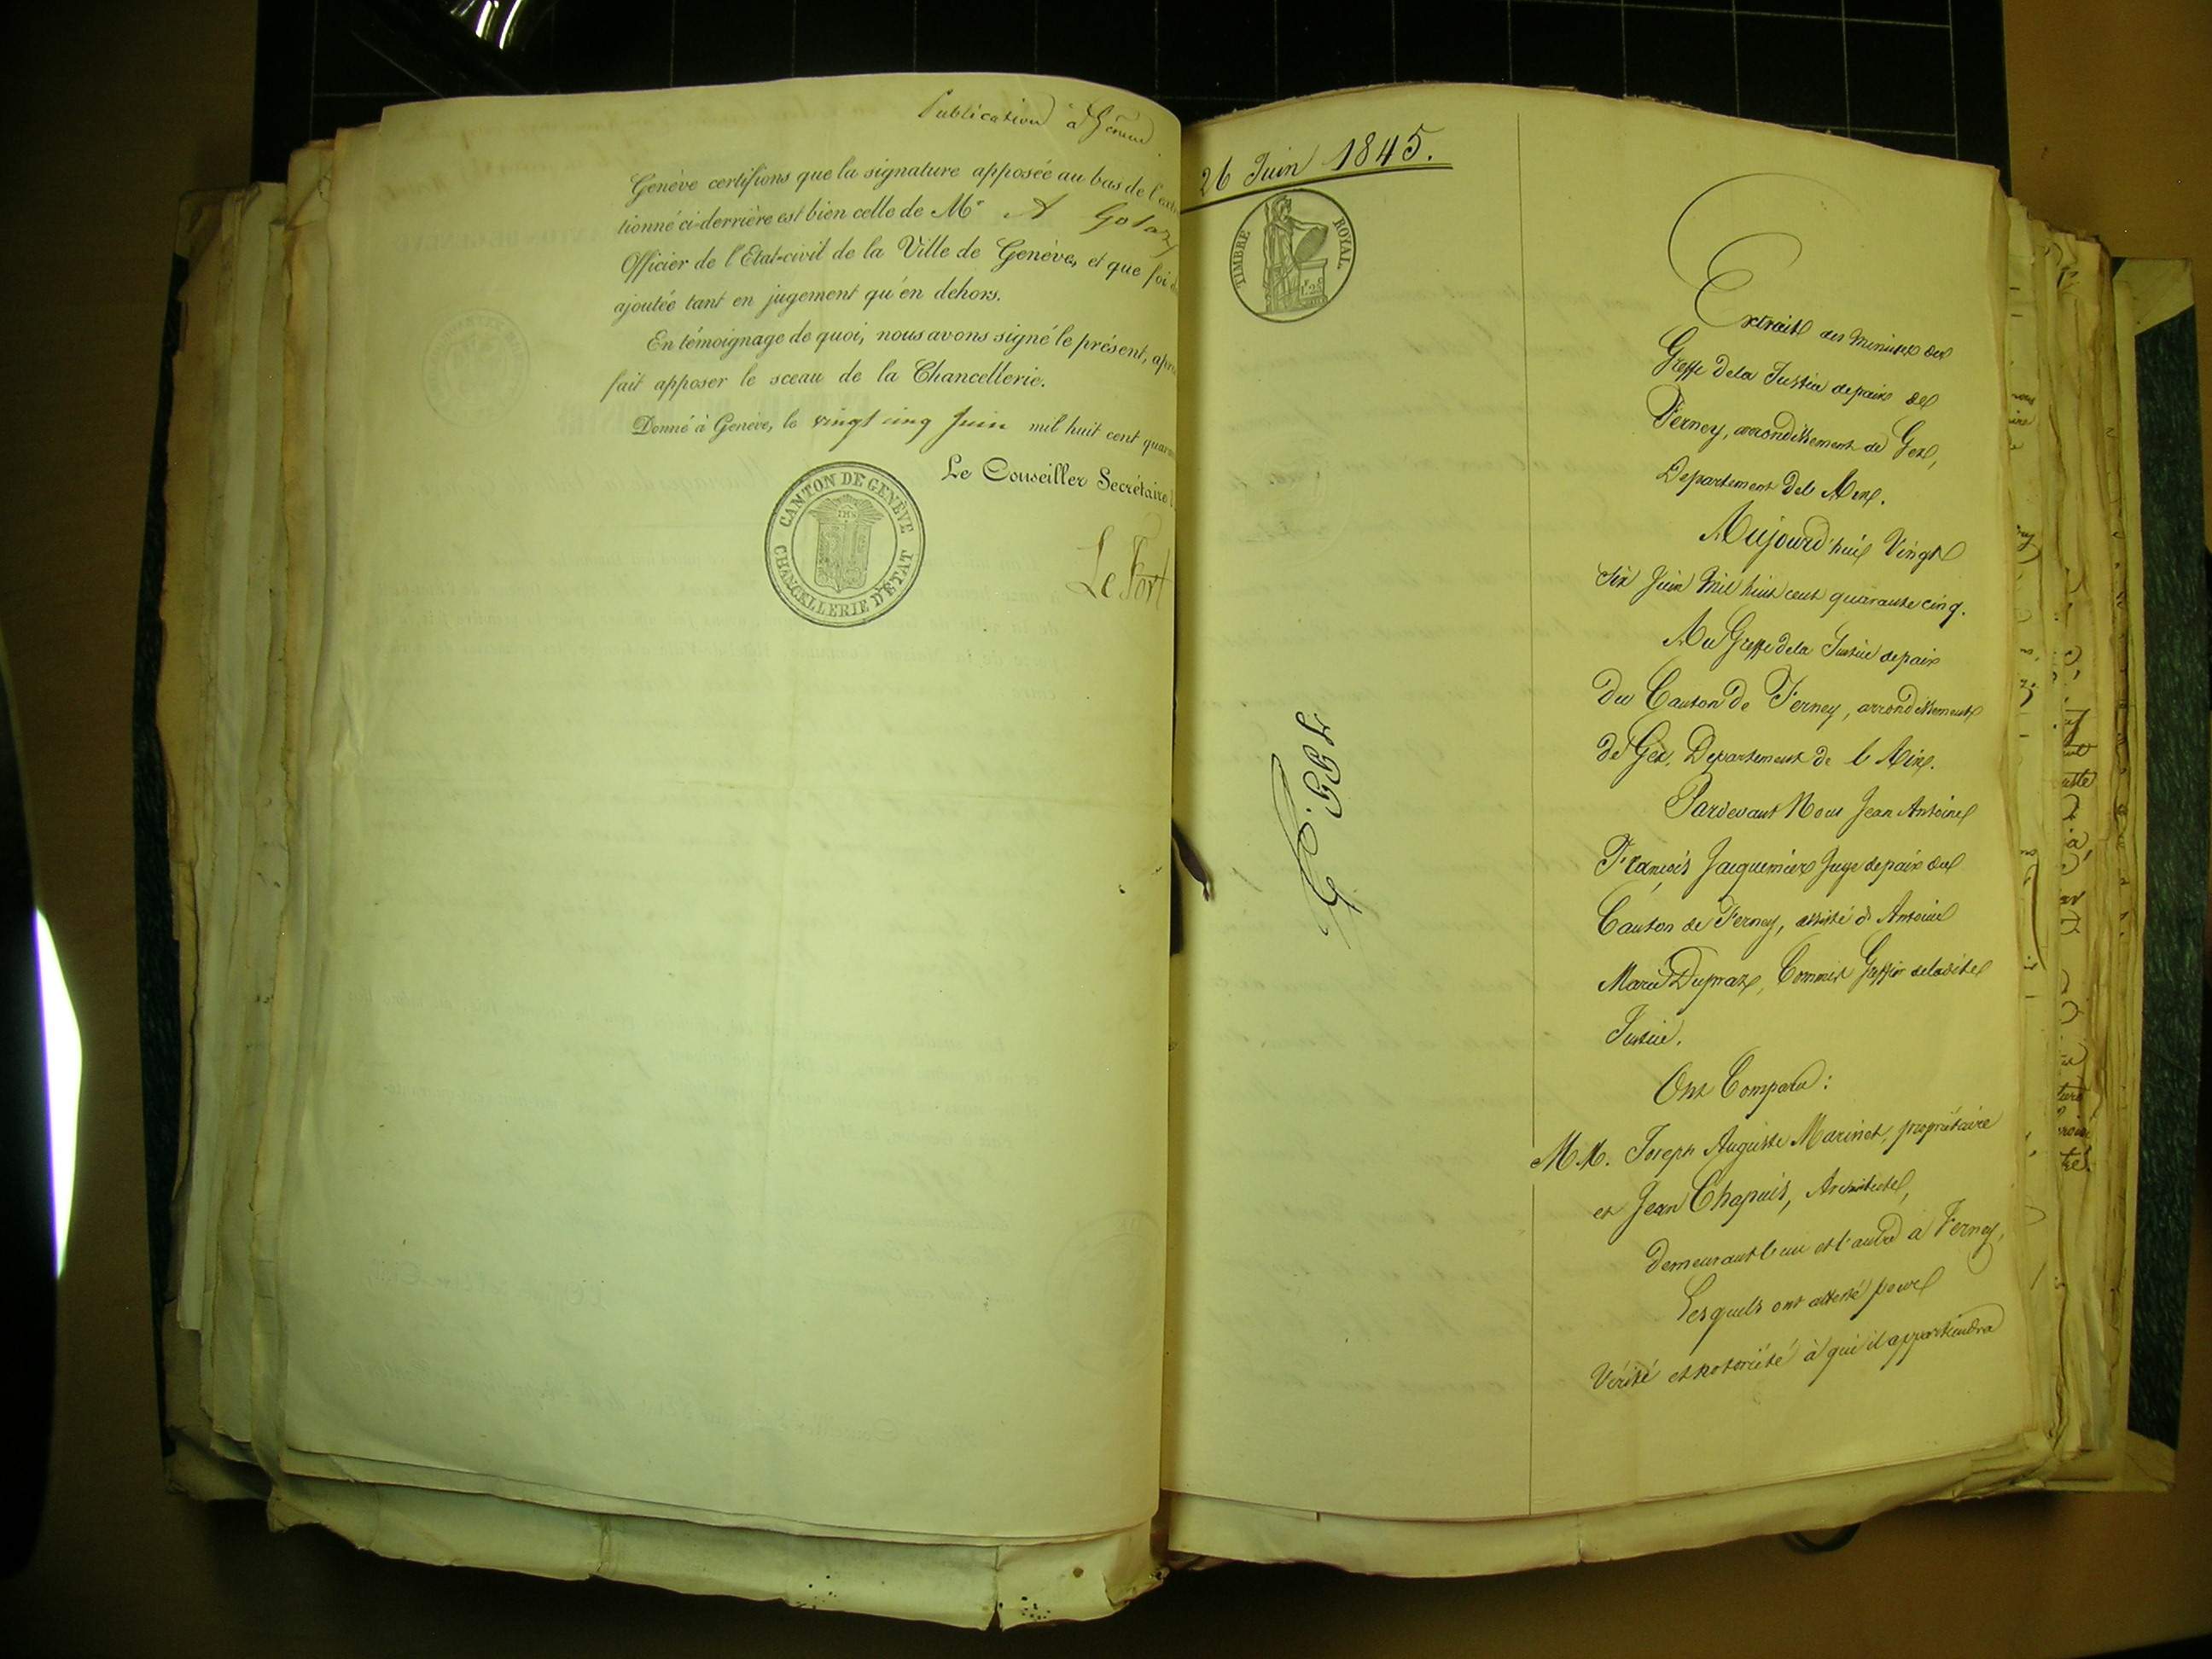 Publication à Genève
Genève certifions que la signature apposée au bas de l'
tionné ci-derrière est bien celle de Mr A Golaz
Officier de l'Etat-civil de la Ville de Genève, et que foi
ajoutée tant en jugement qu'en dehors.
En témoignage de quoi, nous avons signé le présent,
fait apposer le sceau de la Chancellerie.
Donné à Genève, le vingt cinq Juin mil huit cent
Le Conseiller Secrétaire
CANTON DE GENÈVE
CHANCELLERIE D'ÉTAT
Le Fort
26 Juin 1845.
TIMBRE ROYAL
Extrait des Minutes du
Greffe de la Justice de paix de
Ferney, arrondissement de Gex,
Departement de l'Ain.
Aujourd'hui Vingt
Six Juin Mil huit cent quarante cinq.
Au Greffe de la Justice de paix
du Canton de Ferney, arrondissement
de Gex, Departement de l'Ain.
Pardevant Nous Jean Antoine
François Jacquemier Juge de paix du
Canton de Ferney, assisté de Antoine
Marie Dupraz, Commis Greffier de ladite
Justice.
Ont Comparu :
M.M. Joseph Auguste Marinet, propriétaire
et Jean Chapuis, Architecte,
demeurant l'un et l'autre à Ferney,
Lesquels ont attesté pour
Vérité et notoriété à qui il appartiendra